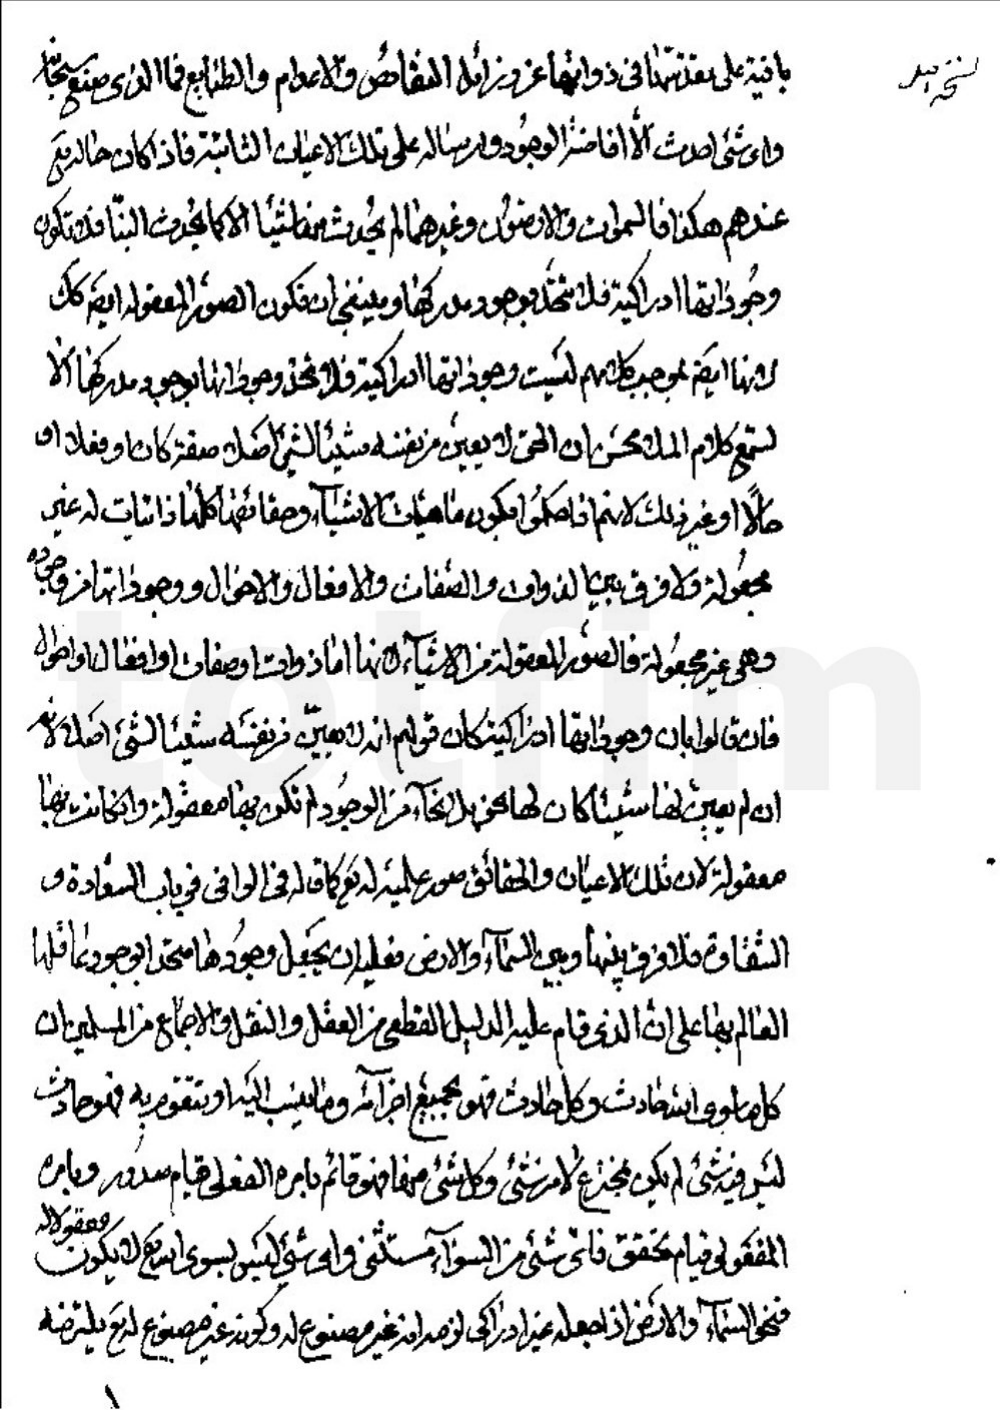 باقية على تقدمتنا في ذواتها عن وزائله النقائص والاعدام والطبايع فما الذي صنع سبحانه
واي شئ احدث الا افاضة الوجود وارساله على تلك الاعيان الثابتة فاذا كان حاله تع
عندهم هكذا فالسموات والارضون وغيرهما لم يحدث منها شيئا الا كما يحدث البنا فلا تكون
وجوداتها ادراكية فلا تتحد بوجود مدركها وينبغي ان تكون الصور المعقولة ايضا كك
لانها ايضا بموجب كلامهم ليست وجوداتها ادراكية فلا تتحد وجوداتها بوجود مدركها الا
تسمع كلام الملا محسن ان الحق لا يعين من نفسه شيئا لشئ اصلا صفة كان او فعلا او
حالا او غير ذلك لانهم اذا حكموا بكون ماهيات الاشياء وحقائقها كلها ذاتيات له غير
مجعولة ولا فرق بين الذوات والصفات والافعال والاحوال ووجوداتها من وجوده
وهي غير مجعولة فالصور المعقولة من الاشياء لانها اما ذوات او صفات او افعال او احوال
فان قالوا بان وجوداتها ادراكية كان قولهم انه لا يعين من نفسه شيئا لشئ اصلا لانه
ان لم يعين لها شيئا كان لها من الوجود لم تكن بها معقولة وان كانت بها
معقولة لان تلك الاعيان والحقائق صور علمية له تع كما قاله في الوافي في باب السعادة و
الشقاوة فلا فرق بينها وبين السماء والارض فعليه ان يجعل وجودها متحدا بوجود عاقلها
العالم بها على ان الذي قام عليه الدليل القطعي من العقل والنقل والاجماع من المسلمين ان
كل ما سوى الله حادث وكل حادث فهو بجميع اجزائه وما ينسب اليه او يتقوم به فهو حادث
ليس فيه شئ لم يكن مخترع لا من شئ وكل شئ منها فهو قائم بامره الفعلي قيام صدور وبامره
المفعولي قيام تحقق فاي شئ من السواء مستثنى واي شئ ليس بسوى الله تع لا يكون معقولا له
فنحو السماء والارض اذا جعله غير ادراكي لزمه انه غير مصنوع له وكونه غير مصنوع له تع يلزمه